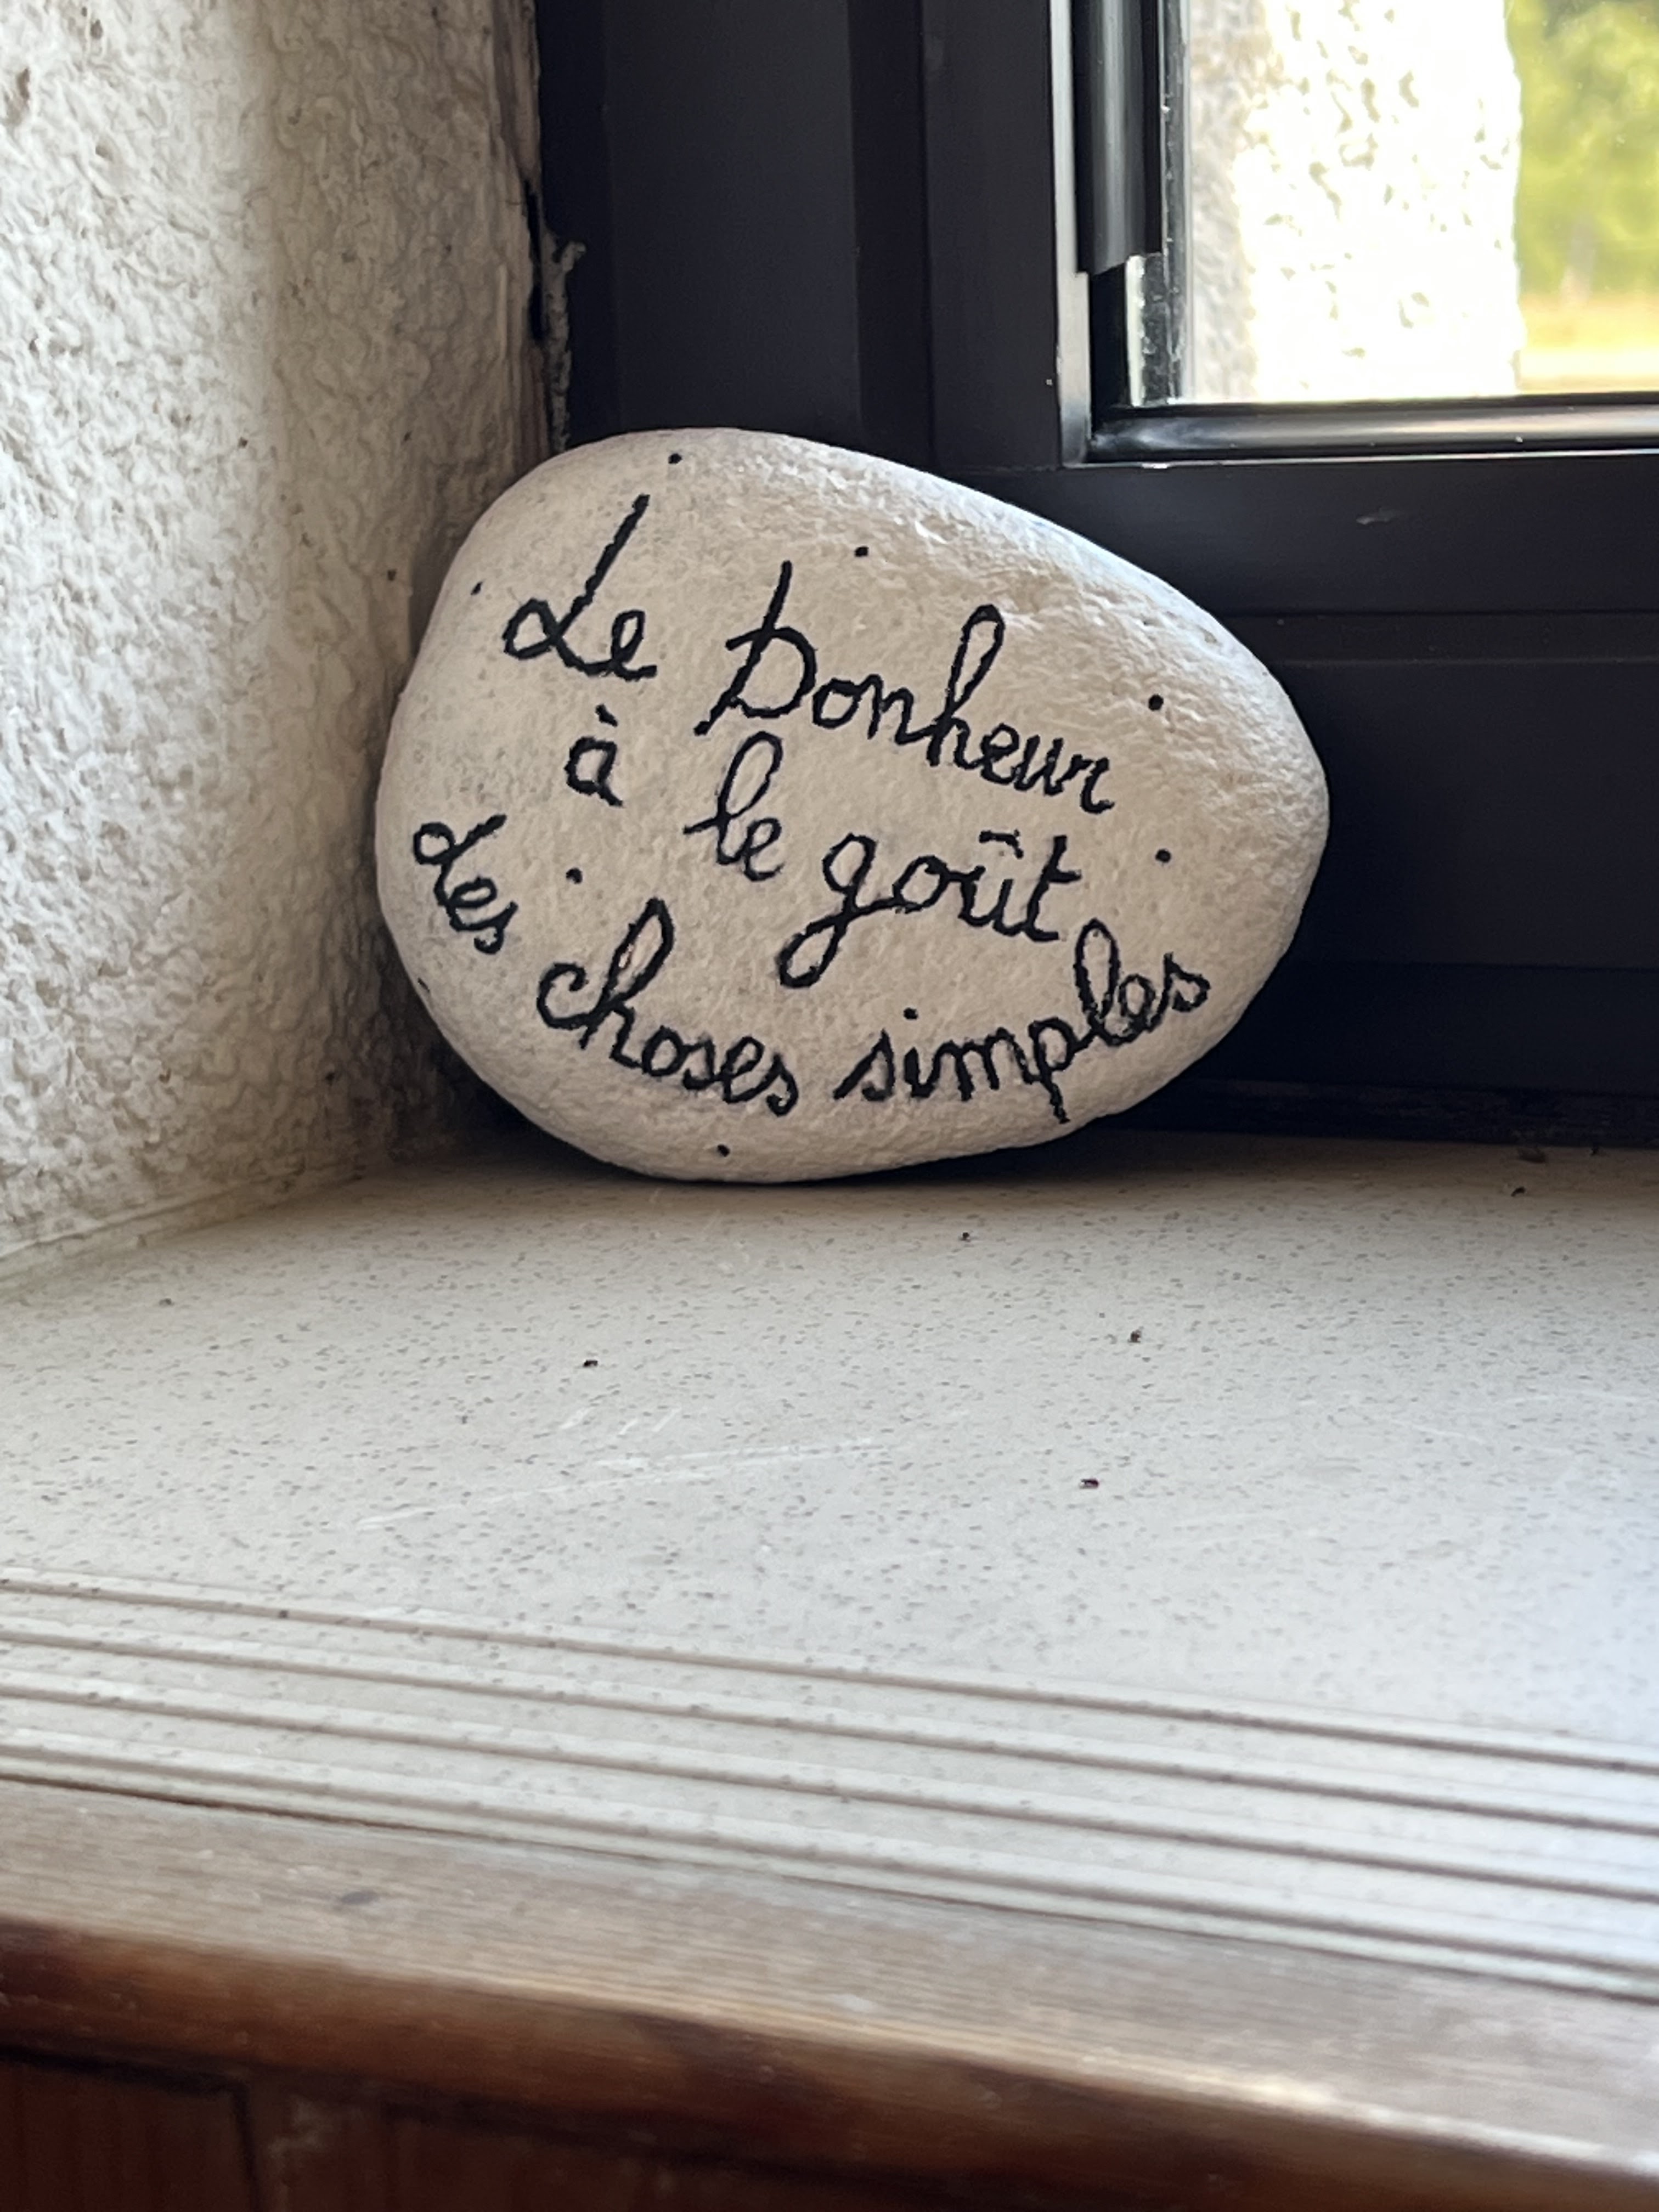 Le bonheur
à le goût
des choses simples